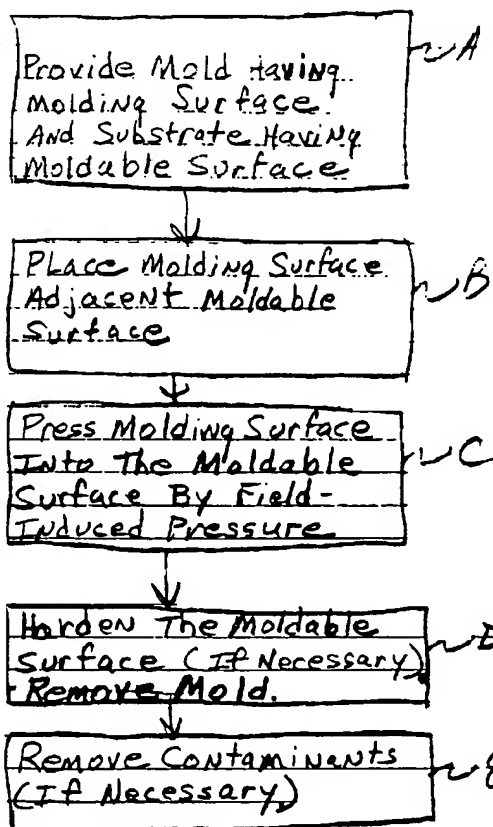 Provide Mold Having
Molding Surface
And Substrate Having
Moldable Surface
A
Place Molding Surface
Adjacent Moldable
Surface
B
Press Molding Surface
Into The Moldable
Surface By Field-
Induced Pressure
C
Harden The Moldable
Surface (If Necessary),
Remove Mold.
Remove Contaminants
(If Necessary)